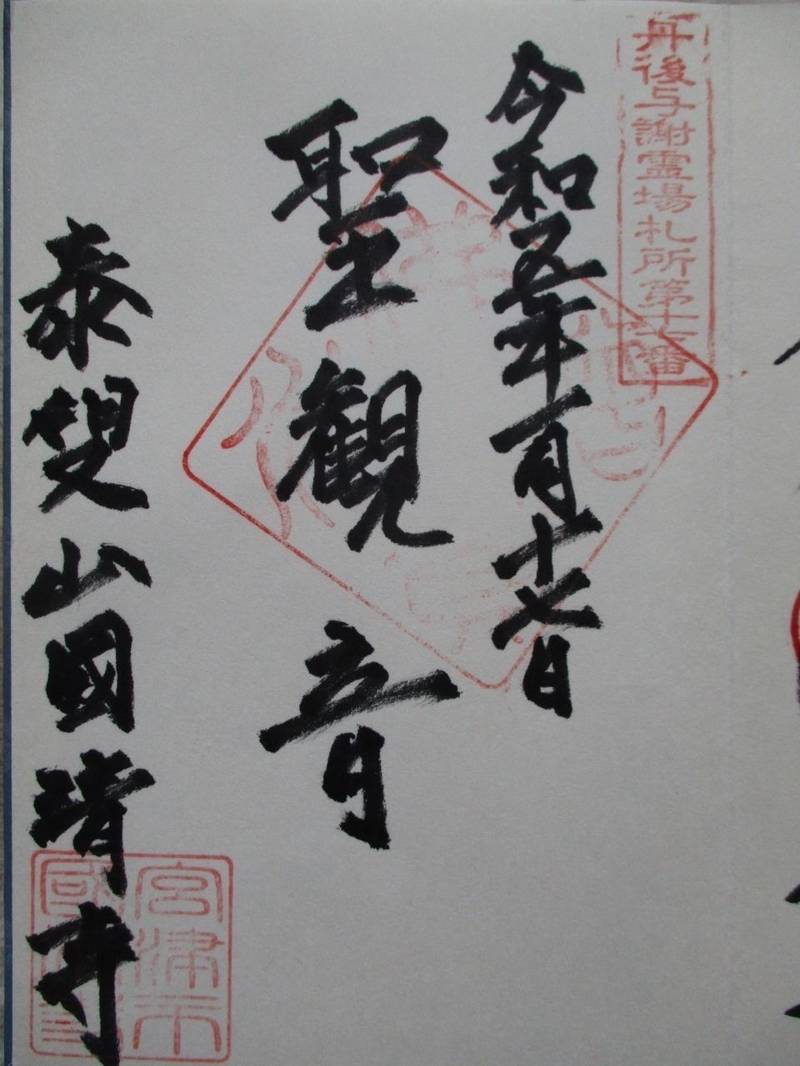 丹後与謝霊場札所第十七番
令和五年一月十七日
聖観音
泰叟山國清寺
宮津市